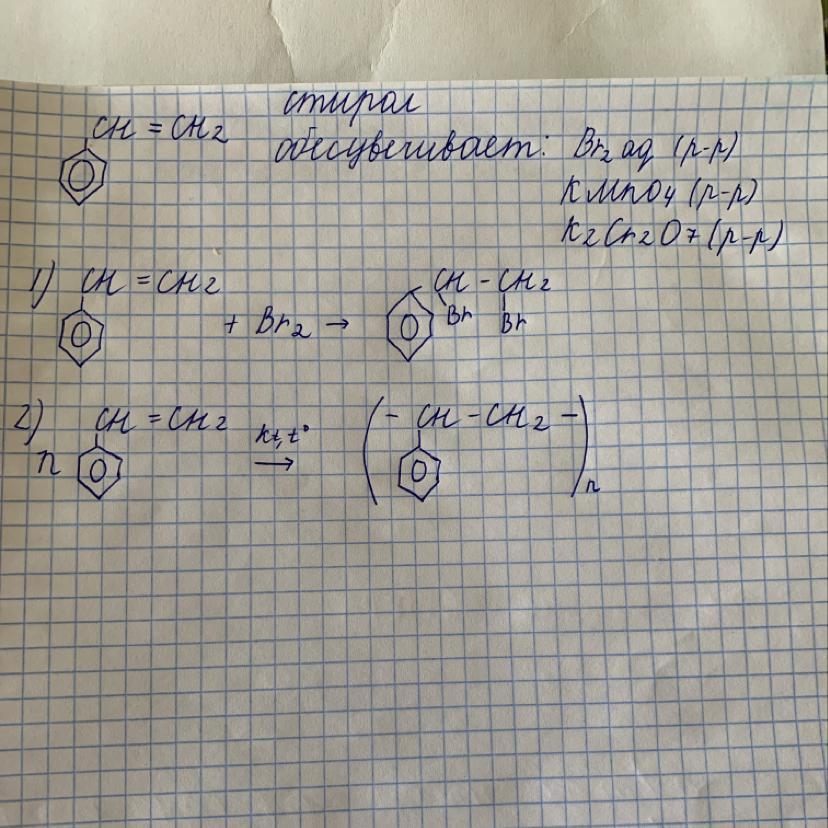 CH = CH2 стирол
обесцвечивает: Br2 aq (р-р)
KMnO4 (р-р)
K2Cr2O7 (р-р)
1) CH = CH2 + Br2 → CH - CH2
Br Br
2) n CH = CH2 kt, t° → (- CH - CH2 -)n